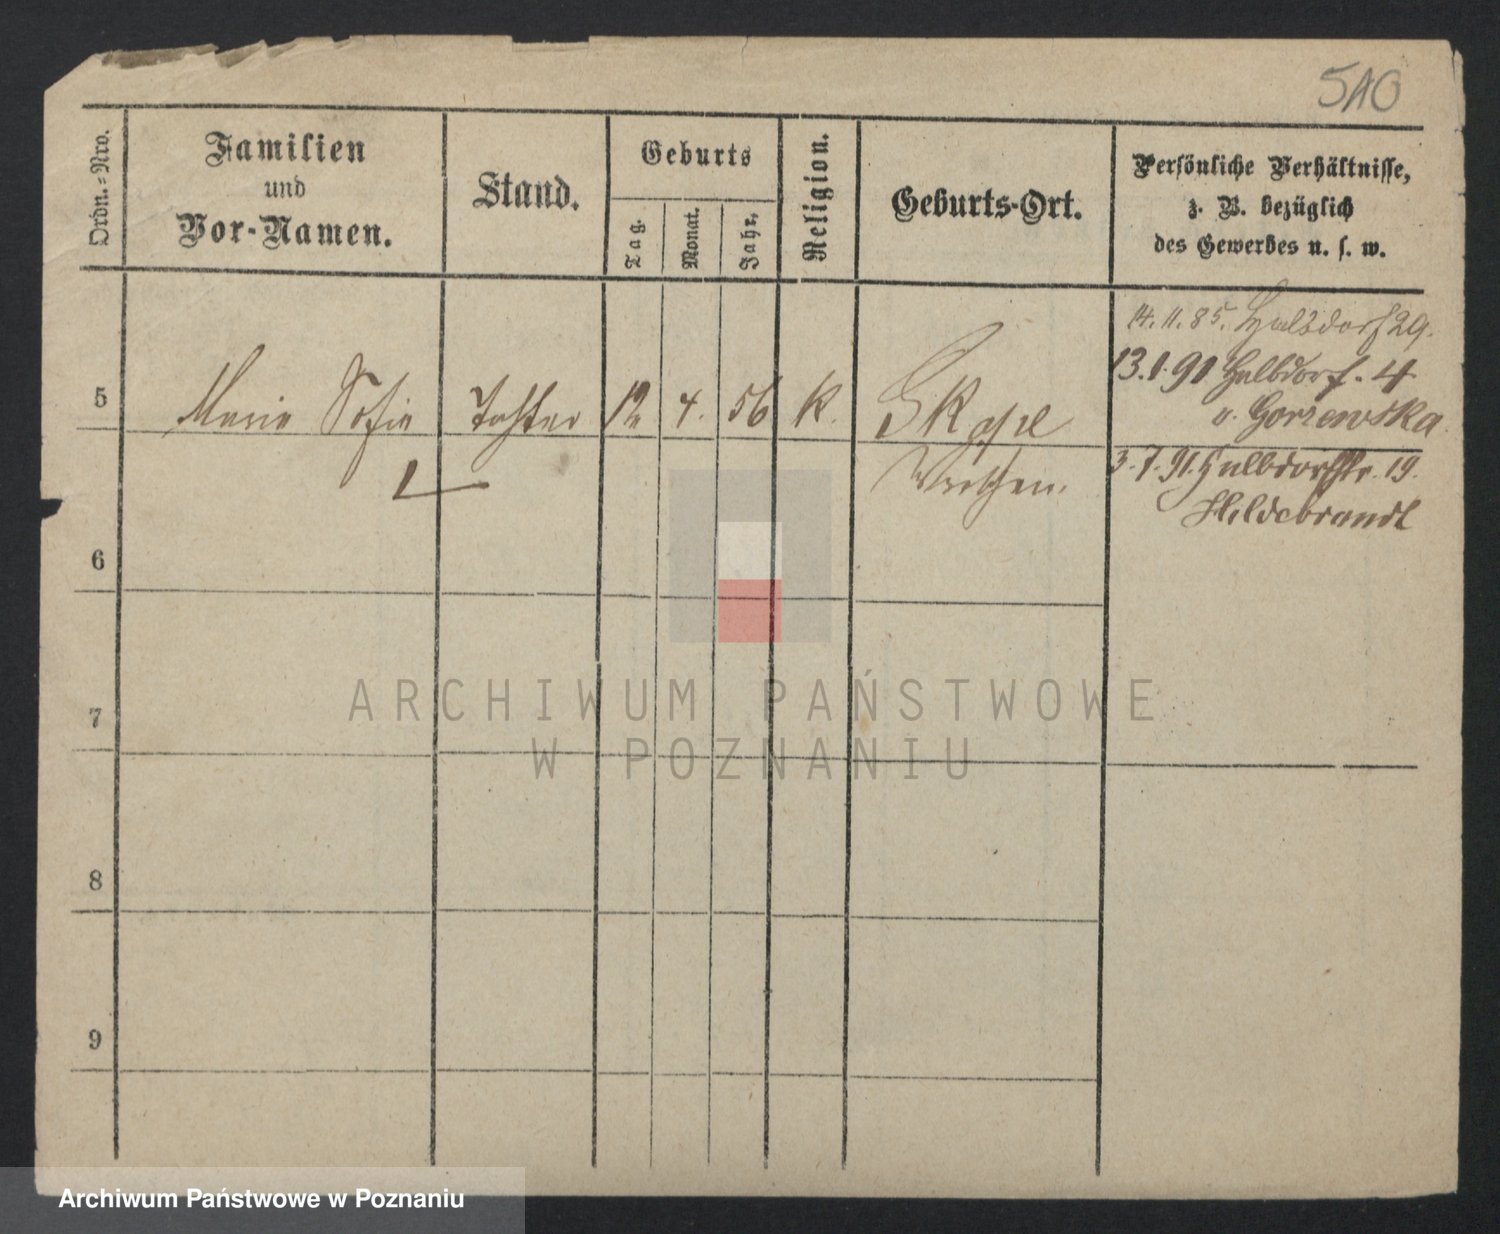 510
Ordn.-Nro.
Familien
und
Vor-Namen.
Stand.
Geburts
Tag.
Monat.
Jahr.
Religion.
Geburts-Ort.
Persönliche Verhältnisse,
z. B. bezüglich
des Gewerbes u. s. w.
14. 11. 85. Halbdorf 29.
13. 1. 91 Halbdorf. 4
v. Gorzewska
5 Marie Sofie Tochter 12 4. 56 K.
3. 7. 91. Halbdorfstr. 19.
Hildebrandt
6
7
8
9
ARCHIWUM PAŃSTWOWE
W POZNANIU
Archiwum Państwowe w Poznaniu